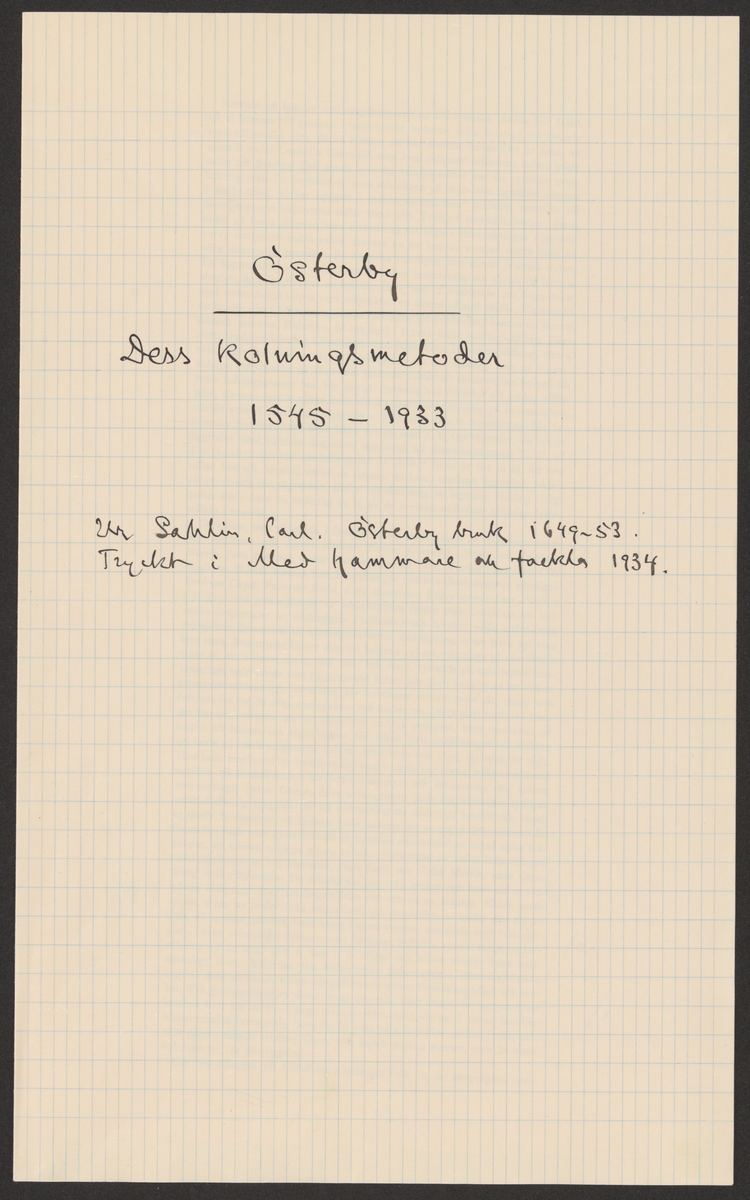 Österby
Dess kolningsmetoder
1545 – 1933
Ur Sahlin, Carl. Österby bruk 1649-53.
Tryckt i Med hammare och fackla 1934.